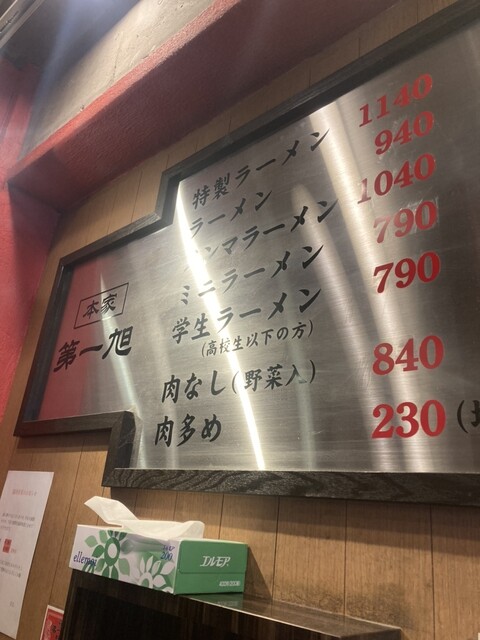 本家
第一旭
特製ラーメン 1140
ラーメン 940
メンマラーメン 1040
ミニラーメン 790
学生ラーメン 790
(高校生以下の方)
肉なし(野菜入) 840
肉多め 230
ellemoi
エルモア